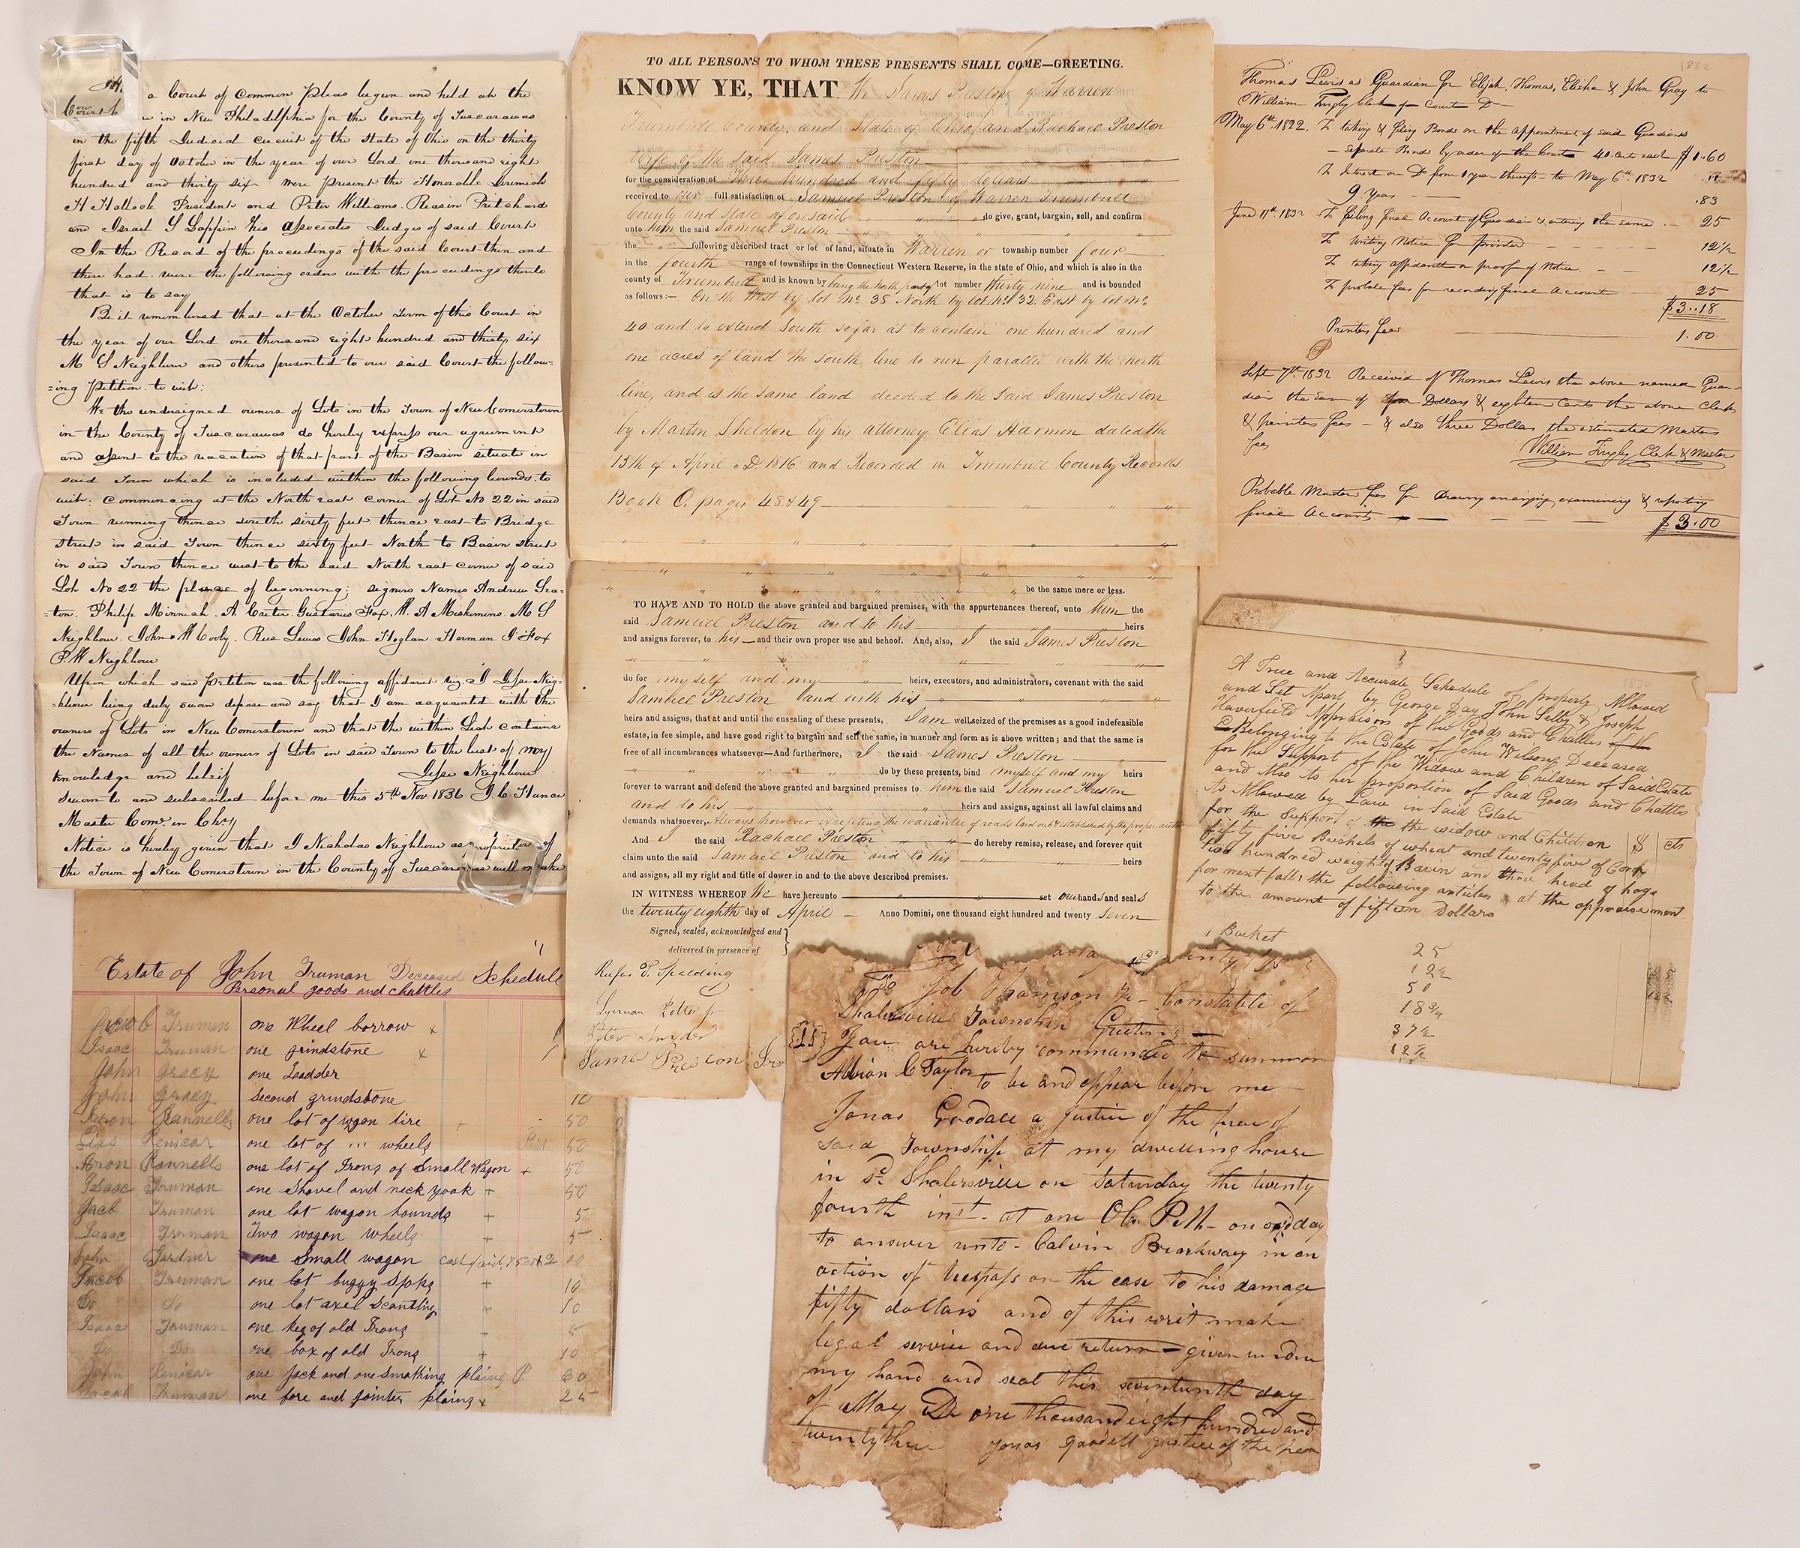 a Court of Common Pleas begun and held at the
Court h in New Philadelphia for the County of Tuscarawas
in the fifth Judicial circuit of the State of Ohio on the thirty
first day of October in the year of our Lord one thousand eight
hundred and thirty six were present the Honorable Jeremiah
H Hallock President and Peter Williams. Reasin Pritchard
and Israel S Lappin his associate Judges of said Court
In the Record of the proceedings of the said Court then and
there had were the following orders with the proceedings thereto
that is to say
Be it remembered that at the October Term of this Court in
the year of our Lord one thousand eight hundred and thirty six
M S Neighbour and others presented to our said Court the follow-
=ing Petition to wit:
We the undersigned owners of Lots in the Town of New Comerstown
in the County of Tuscarawas do hereby express our agreement
and assent to the vacation of that part of the Basin situate in
said Town which is included within the following bounds to
wit: Commencing at the North east corner of Lot No 22 in said
Town running thence south sixty feet thence east to Bridge
Street in said Town thence sixty feet North to Basin street
in said Town thence west to the said North east corner of said
Lot No 22 the place of beginning; signers Names Andrew Sea-
=ton. Philip Minnich. A Carter Gustavus Fox. W. A Miskimins. M S
Neighbour. John W Cooly. Rue Lewis John Hoglan Herman J Fox
P. W Neighbour
Upon which said Petition was the following affidavit viz I Jesse Neig-
=hbour being duly sworn depose and say that I am acquainted with the
owners of Lots in New Comerstown and that the within List contains
the Names of all the owners of Lots in said Town to the best of my
knowledge and belief Jesse Neighbour
Sworn to and subscribed before me this 5th Nov. 1836 J. C Hance
Master Comr. in Chy
Notice is hereby given that I Nicholas Neighbour as proprietor of
the Town of New Comerstown in the County of Tuscarawas will make
TO ALL PERSONS TO WHOM THESE PRESENTS SHALL COME—GREETING.
KNOW YE, THAT We James Preston of Warren
Trumbull County, and State of Ohio, and Rachael Preston
Wife of the said James Preston
for the consideration of Three hundred and fifty dollars
received to our full satisfaction of Samuel Preston of Warren Trumbull
County and State aforesaid do give, grant, bargain, sell, and confirm
unto him the said Samuel Preston
the following described tract or lot of land, situate in Warren or township number four
in the fourth range of townships in the Connecticut Western Reserve, in the state of Ohio, and which is also in the
county of Trumbull and is known by being the North part of lot number thirty nine and is bounded
as follows:— On the West by lot No 38 North by lot No 32 East by lot No
40 and to extend South so far as to contain one hundred and
one acres of land the South line to run parallel with the north
line, and is the same land deeded to the said James Preston
by Martin Sheldon by his attorney Elias Harmon dated the
15th of April AD 1816 and Recorded in Trumbull County Records
Book C, pages 48 & 49
be the same more or less.
TO HAVE AND TO HOLD the above granted and bargained premises, with the appurtenances thereof, unto him the
said Samuel Preston and to his heirs
and assigns forever, to his and their own proper use and behoof. And, also, I the said James Preston
do for my self and my heirs, executors, and administrators, covenant with the said
Samuel Preston and with his
heirs and assigns, that at and until the ensealing of these presents, I am well seized of the premises as a good indefeasible
estate, in fee simple, and have good right to bargain and sell the same, in manner and form as is above written; and that the same is
free of all incumbrances whatsoever—And furthermore, I the said James Preston
do by these presents, bind myself and my heirs
forever to warrant and defend the above granted and bargained premises to him the said Samuel Preston
and to his heirs and assigns, against all lawful claims and
demands whatsoever, Always however excepting the warrantee of roads laid out & established by the proper
And I the said Rachael Preston do hereby remise, release, and forever quit
claim unto the said Samuel Preston and to his heirs
and assigns, all my right and title of dower in and to the above described premises.
IN WITNESS WHEREOF We have hereunto set our hands and seals
the twenty eighth day of April Anno Domini, one thousand eight hundred and twenty seven
Signed, sealed, acknowledged and
delivered in presence of
Rufus P. Spalding
Lyman Potter Jr
1832
Thomas Lewis as Guardian for Elijah, Thomas, Elisha & John Gray to
William Clerk for Courts Dr
May 6th 1822. To taking & filing Bonds on the appointment of said Guardians
– separate Bonds by order of the Court – 40 cents each $1.60
To Interest on Do from 1 year thereafter to May 6th 1832
9 Years .83
June 11th 1832 To filing final Account of Guardian & entering the same 25
To writing Notice for printer 12½
To taking affidavit on proof of Notice 12½
To probate fees for recording final Account 25
$3..18
Printers fees 1.00
Sept 7th 1832 Received of Thomas Lewis the above named Guar-
dian the sum of four Dollars & eighteen Cents the above Clerks
& printers fees – & also three Dollars the estimated Masters
fees
William Clerk & Master
Probable Master fees for drawing arranging, examining & reporting
final Accounts $3.00
A True and Accurate Schedule of property Allowed
and Set Apart by George Day John Selby & Joseph
Haverfield Appraisors of the Goods and Chattles
Belonging to the Estate of John Wilson Deceased
for the Support of the Widow and Children of Said Estate
and Also to her proportion of Said Goods and Chattles
As Allowed by Law in Said Estate
for the Support of the widow and Children $ cts
fifty five Bushels of wheat and twenty five of Corn
two hundred weight of Bacin and three head of hogs
for next fall & the following articles at the appraisement
to the amount of fifteen Dollars
1 Bucket 25
12½
50
18¾
37½
12½
Estate of John Truman Deceased Schedule
Personal goods and chattles
Jacob Truman one Wheel borrow x
Isaac Truman one grindstone x
John Gracy one Ladder
John Gracy second grindstone 10
Aron Rannells one lot of wagon tire 50
Renicar one lot of ... wheels 50
Aron Rannells one lot of Irons of Small Wagon + 50
Isaac Truman one shovel and neck yoak + 50
Jacb Truman one lot wagon hounds + 5
Isaac Truman Two wagon wheels + 5
John Gardner one small wagon cash paid, 75 cts 2 00
Jacob Truman one lot buggy spoks + 10
Do Do one lot axel scantling 10
Isaac Truman one keg of old Irons + 5
Do Do one box of old Irons + 10
John Renicar one Jack and one smothing plaing P 60
Jacob Truman one fore and jointer plaing x 25
To Job Thomson Constable of
Shalersville Township Greeting
You are hereby commanded to summon
Albion C Taylor to be and appear before me
Jonas Goodale a Justice of the peace of
said Township at my dwelling house
in sd Shalersville on Saturday the twenty
fourth inst. at one Oh. P.M– on sd day
to answer unto Calvin Brockway in an
action of trespass on the case to his damage
fifty dollars and of this writ make
legal service and due return – given under
my hand and seal this seventeenth day
of May D one thousand eight hundred and
twenty three Jonas Goodell Justice of the peace